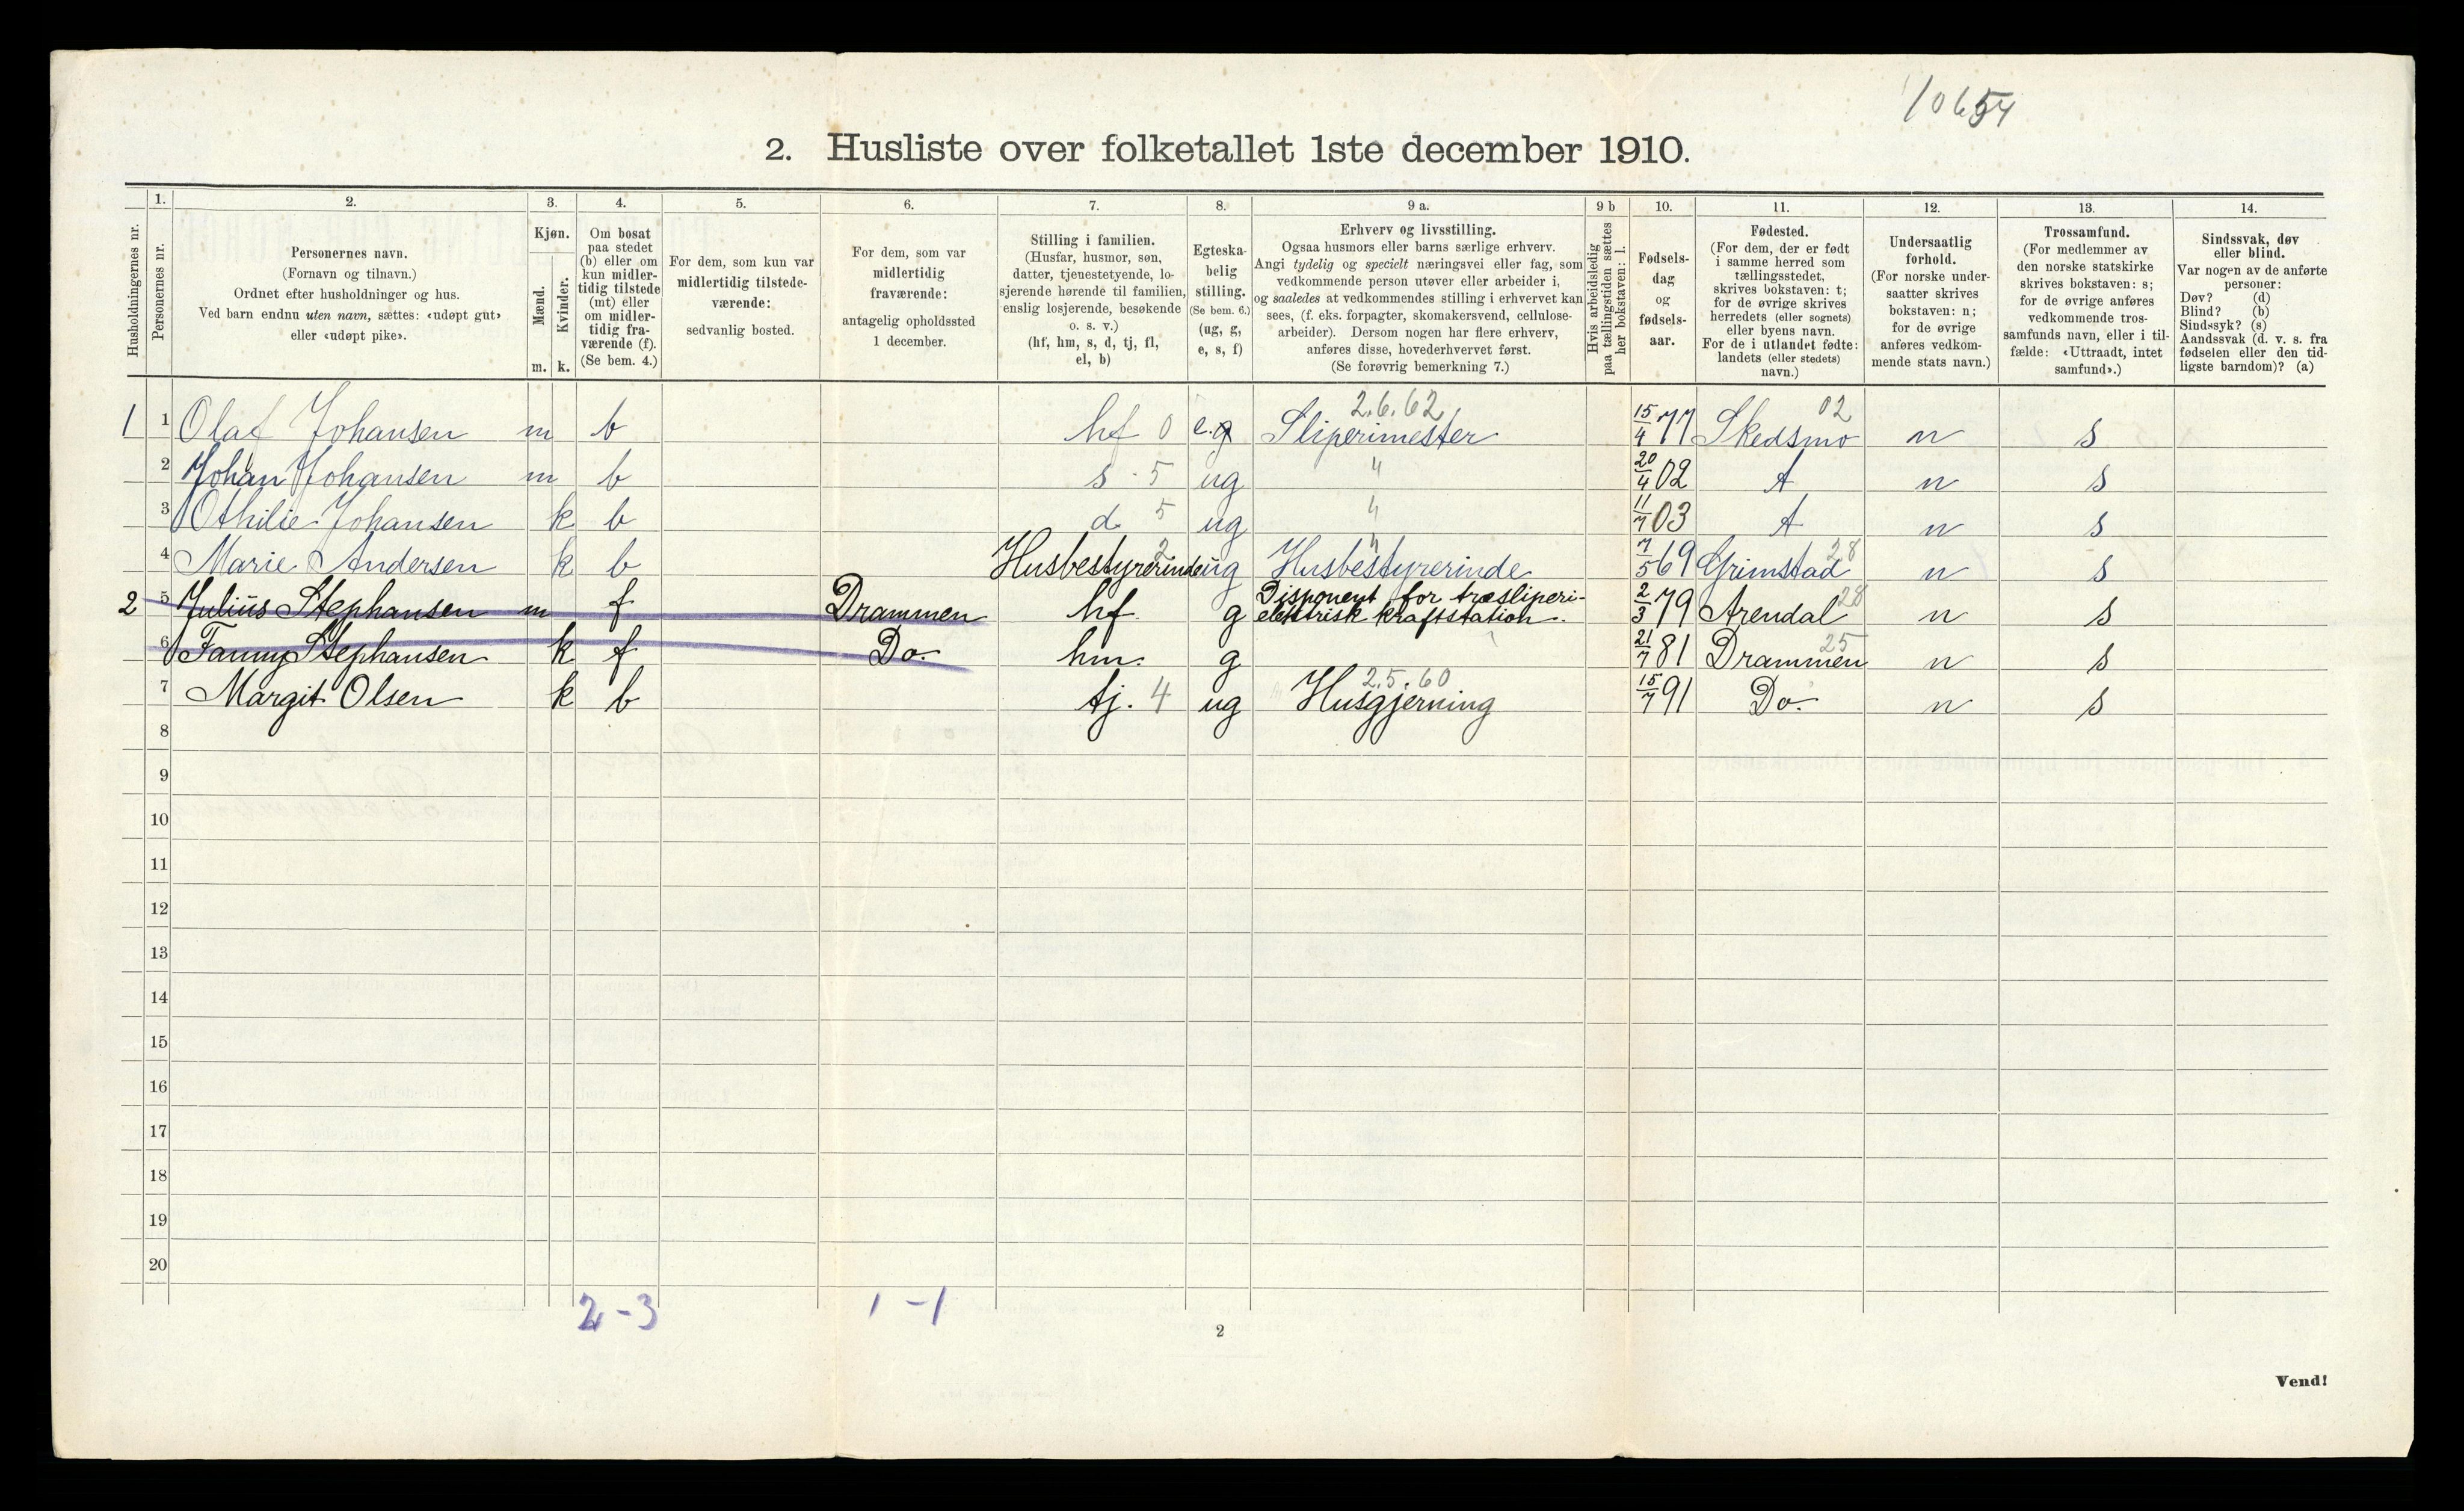 10654
2. Husliste over folketallet 1ste december 1910.
Husholdningernes nr.
1.
Personernes nr.
2.
Personernes navn.
(Fornavn og tilnavn.)
Ordnet efter husholdninger og hus.
Ved barn endnu uten navn, sættes: «udøpt gut»
eller «udøpt pike».
3.
Kjøn.
Mænd.
Kvinder.
m. k.
4.
Om bosat
paa stedet
(b) eller om
kun midler-
tidig tilstede
(mt) eller
om midler-
tidig fra-
værende (f).
(Se bem. 4.)
5.
For dem, som kun var
midlertidig tilstede-
værende:
sedvanlig bosted.
6.
For dem, som var
midlertidig
fraværende:
antagelig opholdssted
1 december.
7.
Stilling i familien.
(Husfar, husmor, søn,
datter, tjenestetyende, lo-
sjerende hørende til familien,
enslig losjerende, besøkende
o. s. v.)
(hf, hm, s, d, tj, fl,
el, b)
8.
Egteska-
belig
stilling.
(Se bem. 6.)
(ug, g,
e, s, f)
9 a.
Erhverv og livsstilling.
Ogsaa husmors eller barns særlige erhverv.
Angi tydelig og specielt næringsvei eller fag, som
vedkommende person utøver eller arbeider i,
og saaledes at vedkommendes stilling i erhvervet kan
sees, (f. eks. forpagter, skomakersvend, cellulose-
arbeider). Dersom nogen har flere erhverv,
anføres disse, hovederhvervet først.
(Se forøvrig bemerkning 7.)
9 b
Hvis arbeidsledig
paa tællingstiden sættes
her bokstaven: l.
10.
Fødsels-
dag
og
fødsels-
aar.
11.
Fødested.
(For dem, der er født
i samme herred som
tællingsstedet,
skrives bokstaven: t;
for de øvrige skrives
herredets (eller sognets)
eller byens navn.
For de i utlandet fødte:
landets (eller stedets)
navn.)
12.
Undersaatlig
forhold.
(For norske under-
saatter skrives
bokstaven: n;
for de øvrige
anføres vedkom-
mende stats navn.)
13.
Trossamfund.
(For medlemmer av
den norske statskirke
skrives bokstaven: s;
for de øvrige anføres
vedkommende tros-
samfunds navn, eller i til-
fælde: «Uttraadt, intet
samfund».)
14.
Sindssvak, døv
eller blind.
Var nogen av de anførte
personer:
Døv? (d)
Blind? (b)
Sindssyk? (s)
Aandssvak (d. v. s. fra
fødselen eller den tid-
ligste barndom)? (a)
2.6.62 02
1 1 Olaf Johansen m b hf 0 e.g Sliperimester 15/4 77 Skedsmo n s
2 Johan Johansen m b s 5 ug " 20/4 02 t n s
3 Othilie Johansen k b d 5 ug " 11/7 03 t n s
4 Marie Andersen k b Husbestyrerinde 2 ug Husbestyrerinde 7/5 69 Grimstad 28 n s
2 5 Julius Stephansen m f Drammen hf g Disponent for træsliperi- elektrisk kraftstation. 2/3 79 Arendal 28 n s
6 Fanny Stephansen k f Do. hm. g 21/7 81 Drammen 25 n s
2.5.60
7 Margit Olsen k b tj. 4 ug Husgjerning 15/7 91 Do. n s
8
9
10
11
12
13
14
15
16
17
18
19
20
2 - 3 1 - 1
2
Vend!